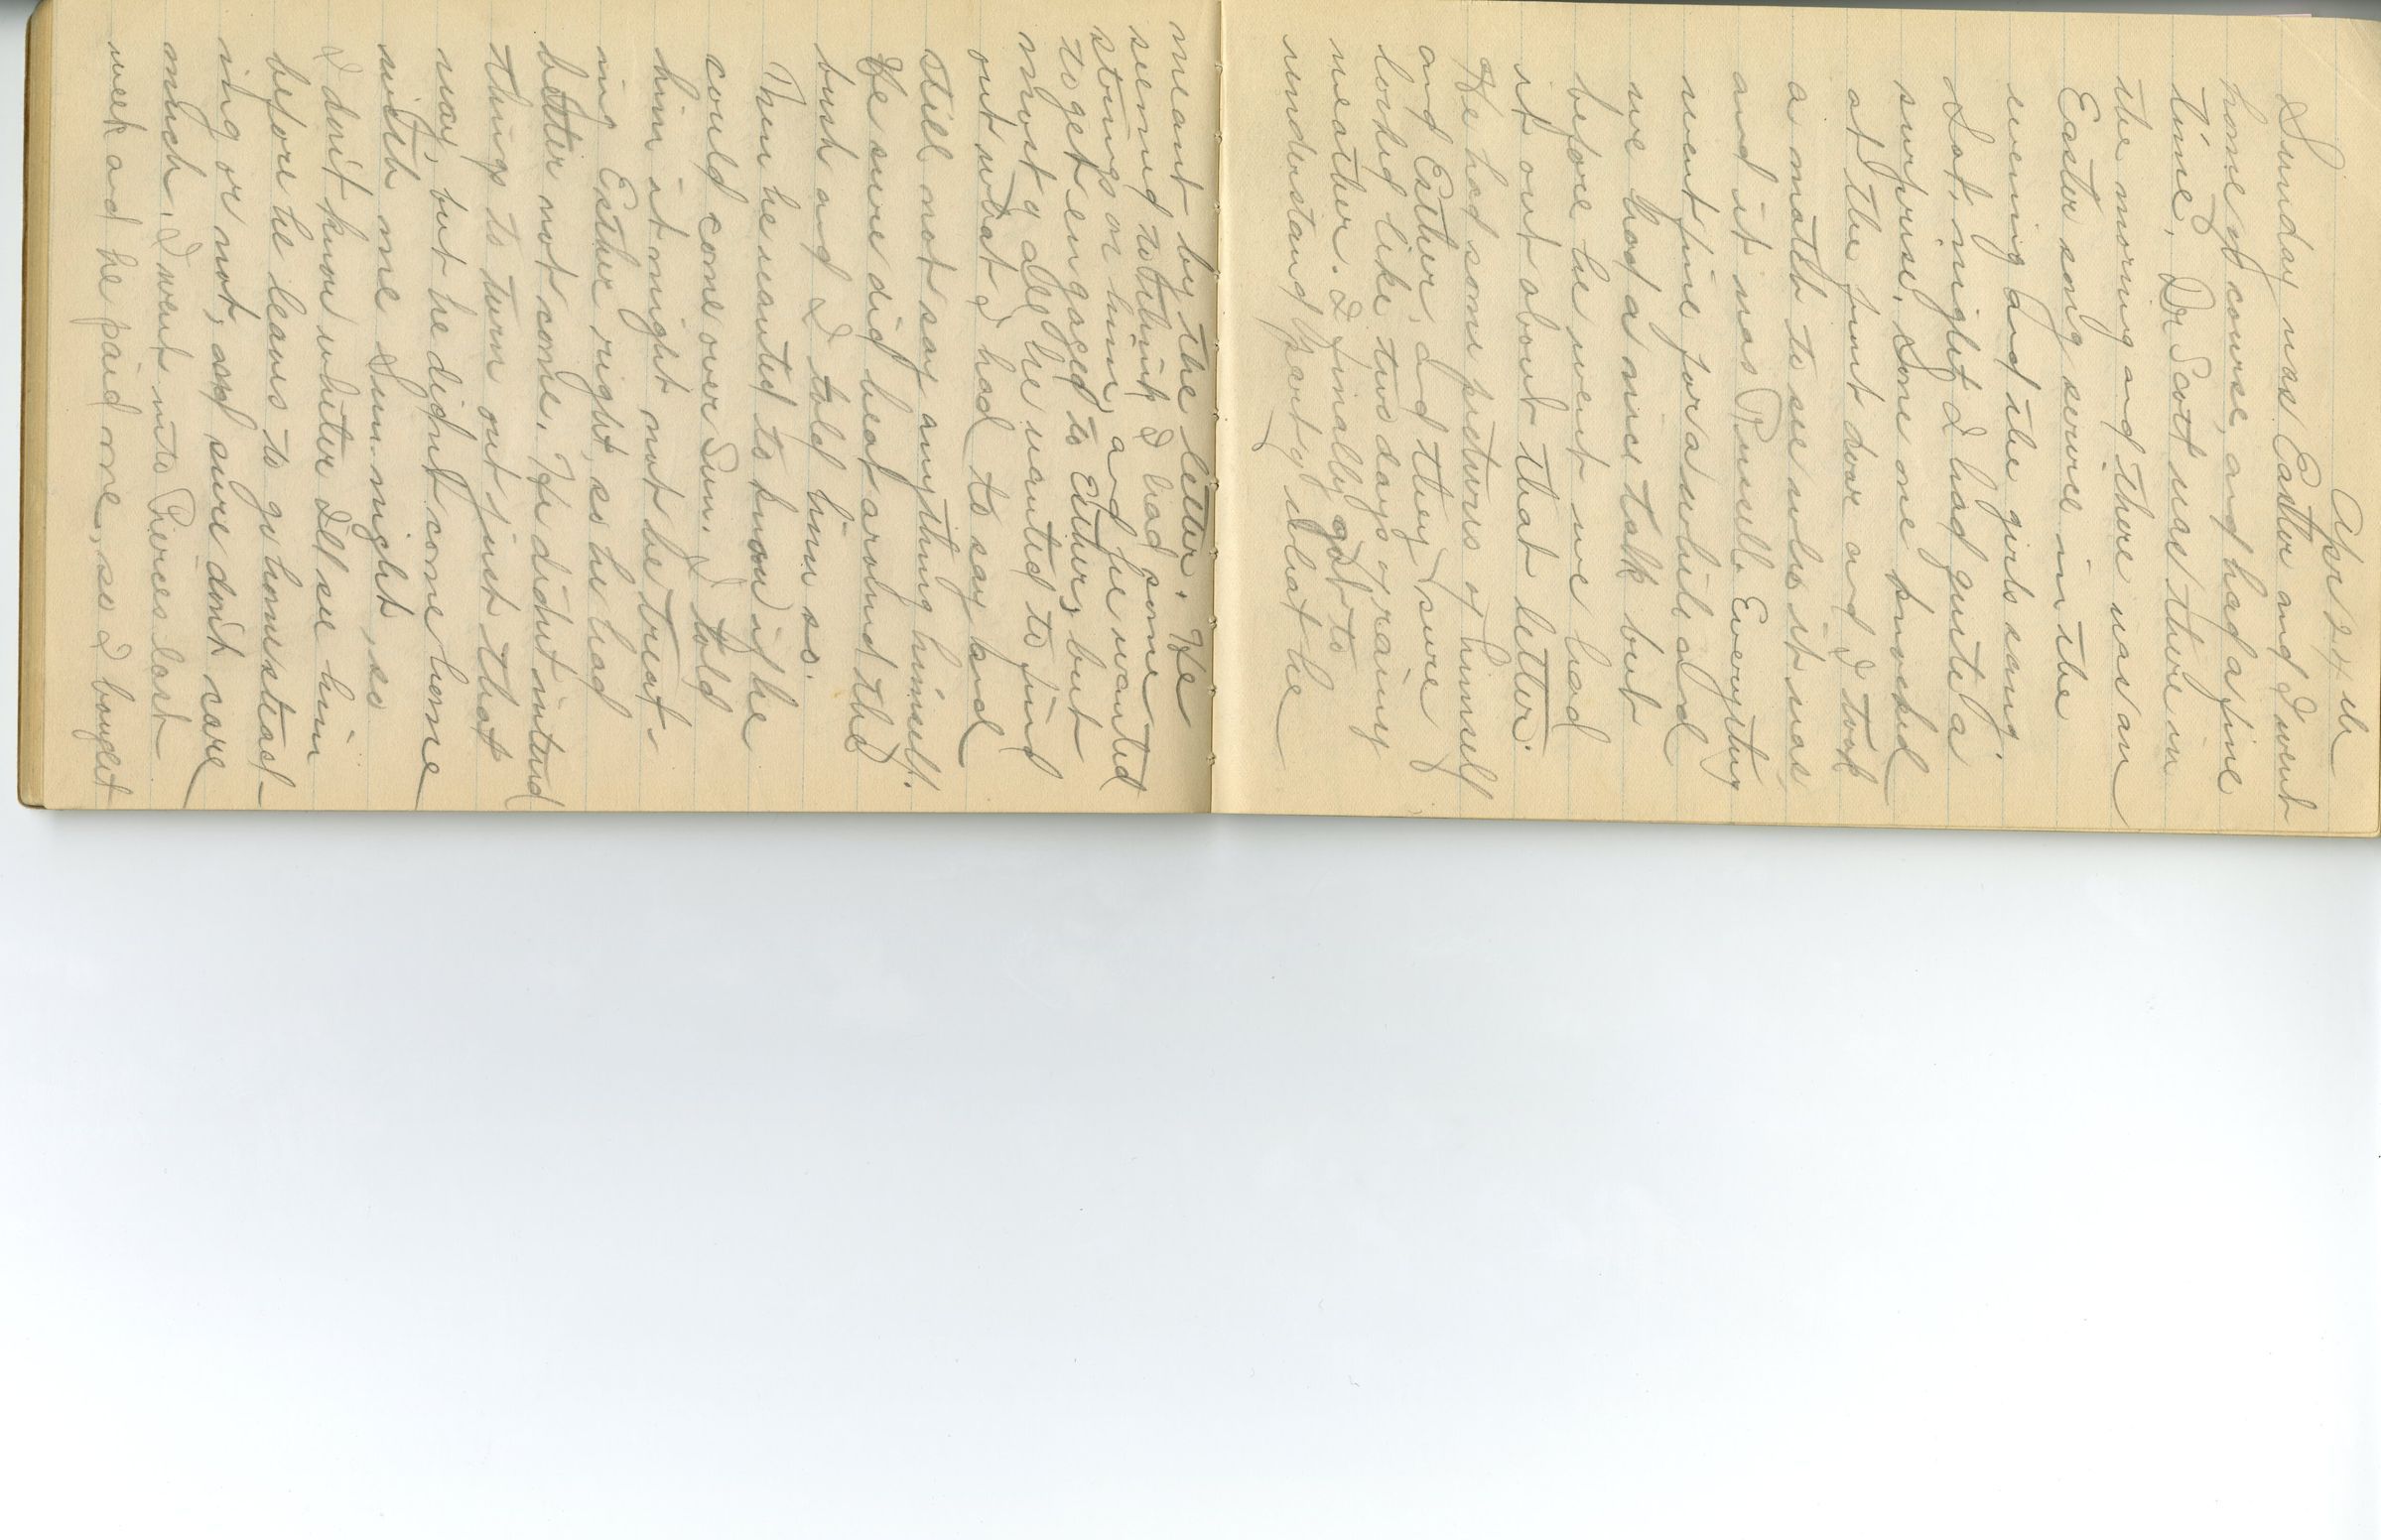 Apr 24th
Sunday was Easter and I went
home of course, and had a fine
time. Dr Scott was there in
the morning and there was an
Easter song service in the
evening and the girls sang.
Sat. night I had quite a
surprise. Some one knocked
at the front door and I took
a match to see who it was,
and it was Russell. Everything
went fine for a while and
we had a nice talk but
before he went we had
it out about that letter.
He had some pictures of himself
and Esther, and they sure
looked like two days of rainy
weather. I finally got to
understand partly what he
meant by the letter. He
seemed to think I had some
strings on him, and he wanted
to get engaged to Esther, but
most of all he wanted to find
out what I had to say and
still not say anything himself.
He sure did beat around the
bush and I told him so.
Then he wanted to know if he
could come over Sun. I told
him it might not be treat-
ing Esther right, so he had
better not come. He didnt intend
things to turn out just that
way, but he didnt come home
with me Sun. night, so
I don't know wheter I'll see him
before he leaves to go homestead-
ing or not, and sure don't care
much. I went into Pierces last
week and he paid me, so I bought